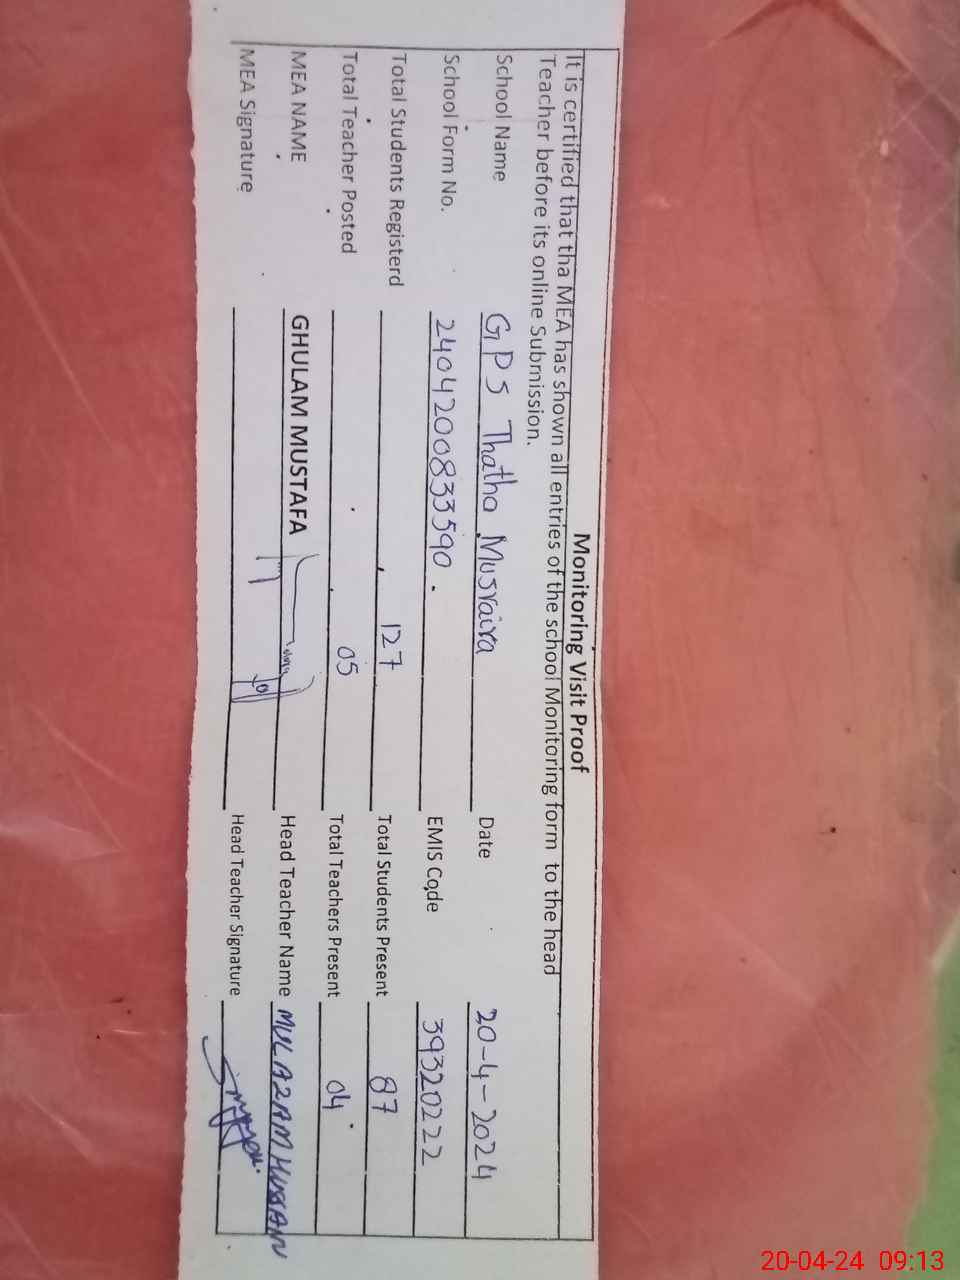 Monitoring Visit Proof
It is certified that tha MEA has shown all entries of the school Monitoring form to the head
Teacher before its online Submission.
School Name GPS Thatha Musraira Date 20-4-2024
School Form No. 2404200833590 EMIS Code 39320222
Total Students Registerd 127 Total Students Present 87
Total Teacher Posted 05 Total Teachers Present 04
MEA NAME GHULAM MUSTAFA Head Teacher Name MULAZAM HUSSAIN
MEA Signature Head Teacher Signature
20-04-24 09:13